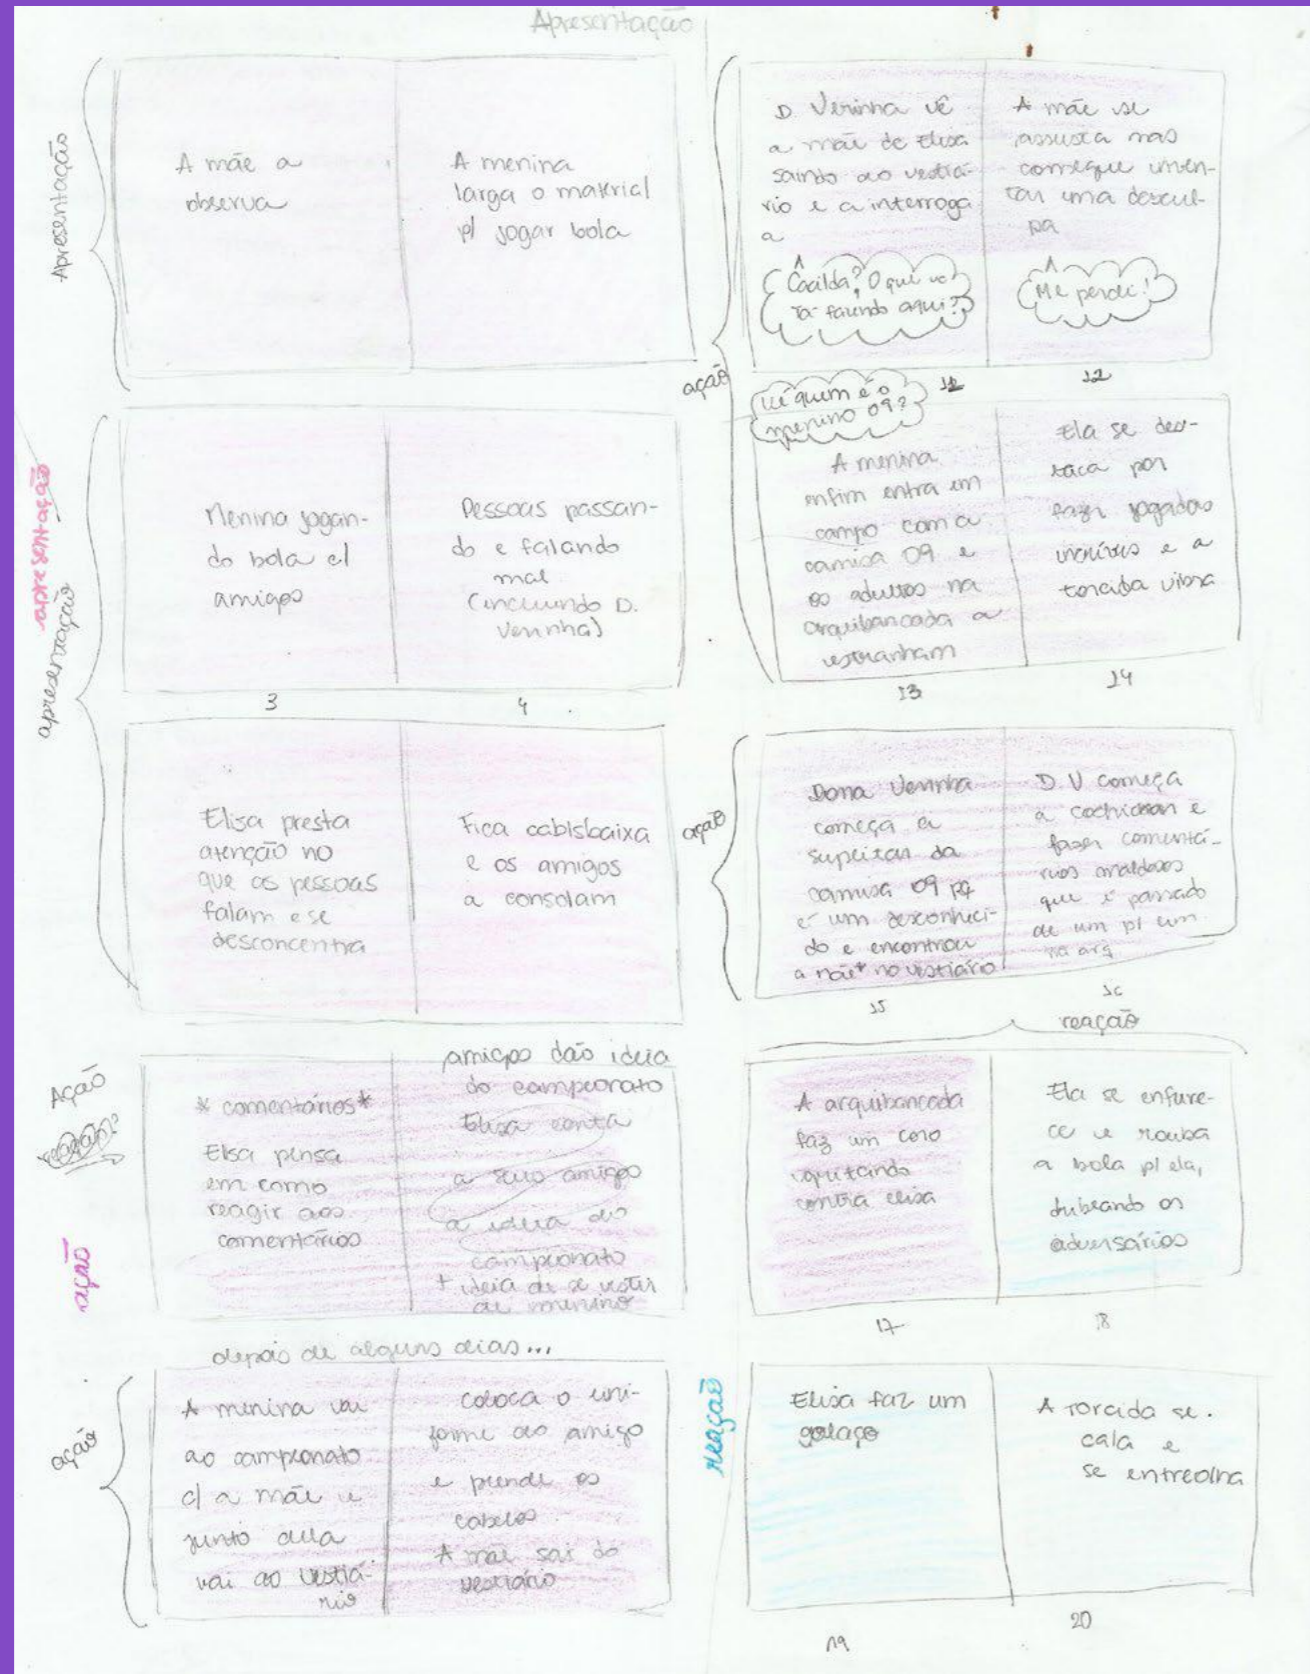 Apresentação
Apresentação
A mãe a
observa
A menina
larga o material
p/ jogar bola
apresentação
apresentação
Menina jogan-
do bola c/
amigos
3
Pessoas passan-
do e falando
mal
(incluindo D.
Verinha)
4
Elisa presta
atenção no
que as pessoas
falam e se
desconcentra
Fica cabisbaixa
e os amigos
a consolam
Ação
ação
* comentários *
Elisa pensa
em como
reagir aos
comentários
amigos dão ideia
do campeonato
Elisa conta
a seus amigos
a ideia do
campeonato
+ ideia de se vestir
de menino
depois de alguns dias...
ação
A menina vai
ao campeonato
c/ a mãe e
junto dela
vai ao vestiá-
rio
coloca o uni-
forme do amigo
e prende os
cabelos
A mãe sai do
vestiário
ação
D. Verinha vê
a mãe de Elisa
saindo do vestiá-
rio e a interroga
a
Cacilda? O que vo
tá fazendo aqui?
A mãe se
assusta mas
consegue inven-
tar uma descul-
pa
Me perdi!
12
Ué quem é o
menino 09?
A menina
enfim entra em
campo com a
camisa 09 e
os adultos na
arquibancada a
estranham
13
Ela se des-
taca por
fazer jogadas
incríveis e a
torcida vibra
14
ação
Dona Verinha
começa a
supeitar da
camisa 09 pq
é um desconheci-
do e encontrou
a mãe* no vestiário
15
D.V começa
a cochichar e
fazer comentá-
rios maldosos
que é passado
de um p/ um
na arq
16
reação
A arquibancada
faz um coro
gritando
contra elisa
17
Ela se enfure-
ce e rouba
a bola p/ ela,
driblando os
adversários
18
reação
Elisa faz um
golaço
19
A torcida se
cala e
se entreolha
20